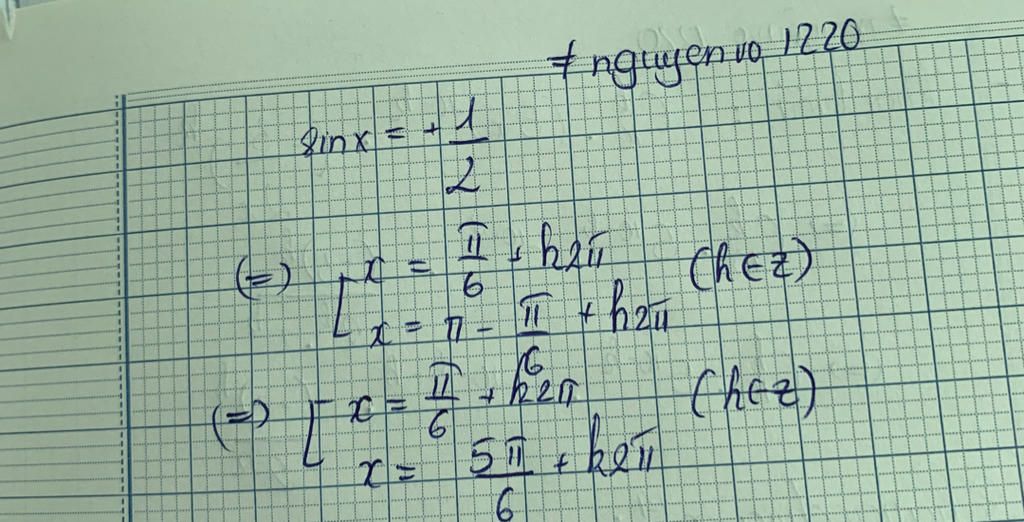 # nguyenvo1220
sinx = + 1/2
(=) [ x = π/6 + k2π (k∈z)
x = π - π/6 + k2π
(=) [ x = π/6 + k2π (k∈z)
x = 5π/6 + k2π